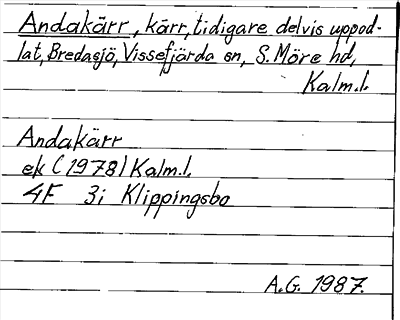 Andakärr, kärr, tidigare delvis uppod-
lat, Bredasjö, Vissefjärda sn, S. Möre hd,
Kalm.l.
Andakärr
ek (1978) Kalm.l.
4F 3i Klippingsbo
A.G. 1987.